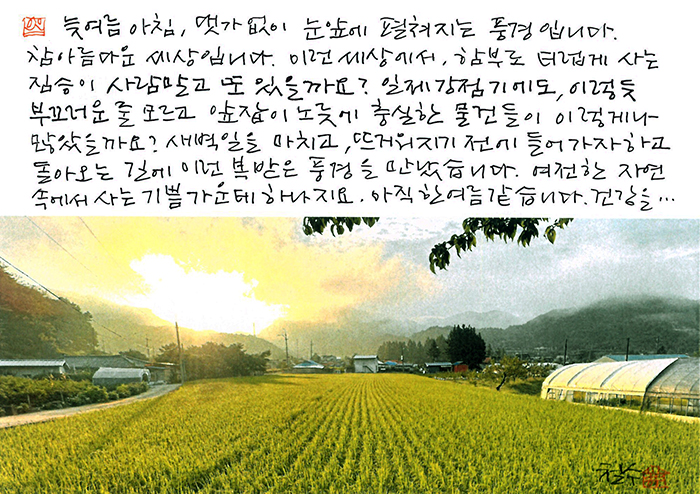 늦여름 아침, 댓가 없이 눈앞에 펼쳐지는 풍경입니다.
참 아름다운 세상입니다. 이런 세상에서, 함부로 더럽게 사는
짐승이 사람말고 또 있을까요? 일제강점기에도, 이렇듯
부끄러운 줄 모르고 앞잡이 노릇에 충실한 물건들이 이렇게나
많았을까요? 새벽일을 마치고, 뜨거워지기 전에 들어가자 하고
돌아오는 길에 이런 복받은 풍경을 만났습니다. 여전한 자연
속에서 사는 기쁨 가운데 하나지요. 아직 한여름 같습니다. 건강을...
철수